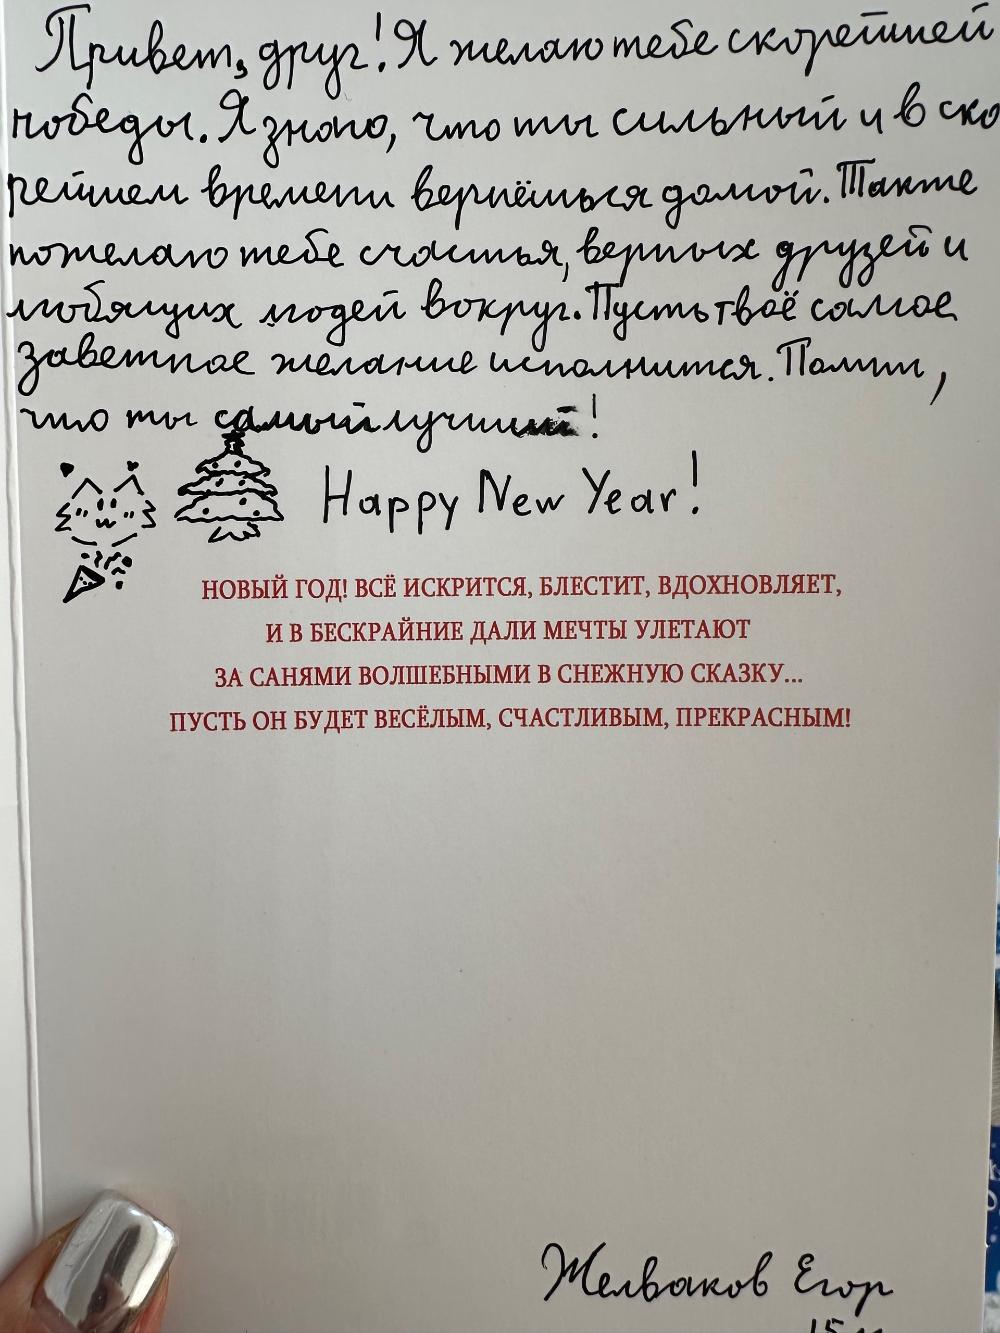 Привет, друг! Я желаю тебе скорейшней
победы. Я знаю, что ты сильный и в ско
рейшем времени вернёшься домой. Также
пожелаю тебе счастья, верных друзей и
любящих людей вокруг. Пусть твоё самое
заветное желание исполнится. Помни,
что ты самый лучший!
Happy New Year!
НОВЫЙ ГОД! ВСЁ ИСКРИТСЯ, БЛЕСТИТ, ВДОХНОВЛЯЕТ,
И В БЕСКРАЙНИЕ ДАЛИ МЕЧТЫ УЛЕТАЮТ
ЗА САНЯМИ ВОЛШЕБНЫМИ В СНЕЖНУЮ СКАЗКУ...
ПУСТЬ ОН БУДЕТ ВЕСЁЛЫМ, СЧАСТЛИВЫМ, ПРЕКРАСНЫМ!
Желваков Егор